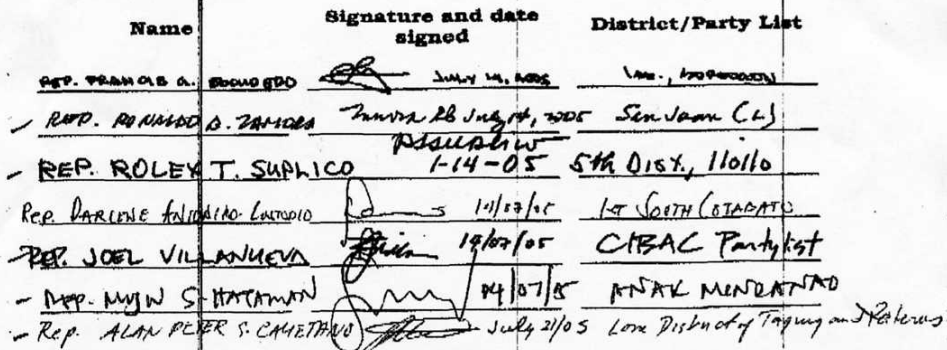 Name Signature and date signed District/Party List
REP. FRANCIS G. ESCUDERO July 14, 2005 1st., SORSOGON
REP. RONALDO B. ZAMORA July 14, 2005 San Juan (L)
REP. ROLEX T. SUPLICO 1-14-05 5th DIST., Iloilo
Rep. DARLENE ANTONINO-CUSTODIO 14/07/05 1st SOUTH COTABATO
REP. JOEL VILLANUEVA 14/07/05 CIBAC Partylist
REP. MUJIV S. HATAMAN 14/07/05 ANAK MINDANAO
Rep. ALAN PETER S. CAYETANO July 21/05 Lone District of Taguig and Pateros